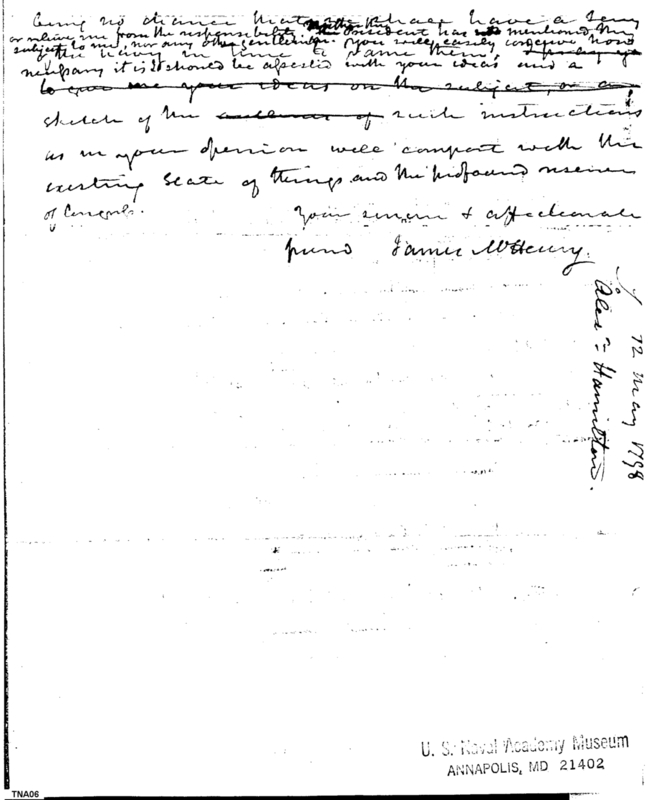 being no chance that we shall have a Secy
or relieve me from the responsibility. Neither the President has mentioned the
subject to me, nor any other gentleman. You will easily conceive how
of the navy in time to frame them,
necessary it is I should be assisted with your ideas and a
to give me your ideas on the subject, or a
sketch of the outlines of such instructions
as in your opinion will comport with the
existing state of things and the profound reserve
of Congress.
Your sincere & affectionate
friend James McHenry.
12 May 1798
Alexr Hamilton.
U. S. Naval Academy Museum
ANNAPOLIS, MD 21402
TNA06